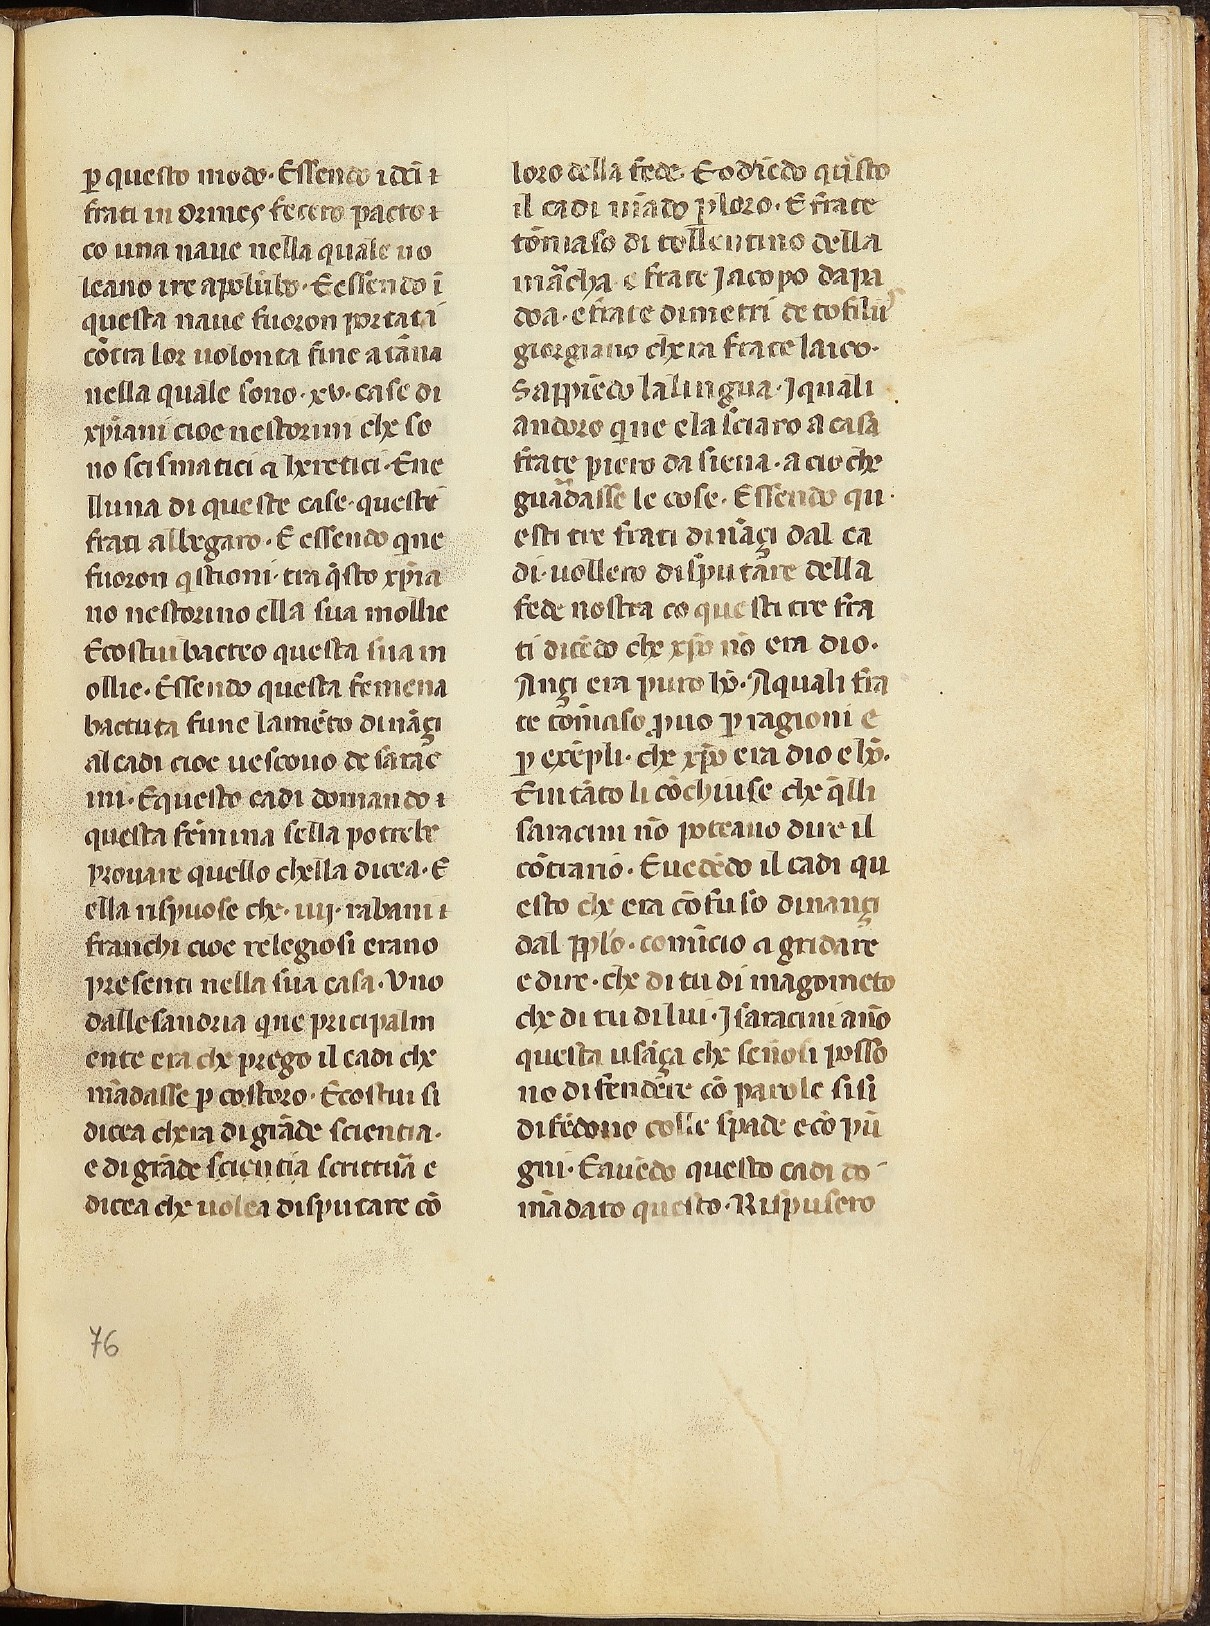 p̱ questo modo· Essendo i dcĩ ⁊
frati in Ormeς fecero pacto ⁊
co una naue nella quale uo
leano ire a polūbo· E essendo ĩ
questa naue fuoron portati
cōtra lor uolonta fine a tāna
nella quale sono· xv· case di
xp̄iani cioe nestorini che so
no scismatici ⁊ heretici· Ene
lluna di queste case· queste
frati albegaro· E essendo que
fuoron q̄stioni· tra q̄sto xp̄ia
no nestorino ella sua mollie
E costui bacteo questa sua m
ollie· Essendo questa femena
bactuta fune lamēto dināçi
al cadi cioe uescouo de sarac
ini· E questo cadi domando ⁊
questa femina sella potrebe
prouare quello chella dicea· E
ella rispuose che· iiij· rabani ⁊
franchi cioe relegiosi erano
presenti nella sua casa· Uno
dallesandria que pricipalm
ente era che prego il cadi che
mādasse p̱ costoro· E costui si
dicea chera di grāde scientia·
e di grāde scientia scrittura e
dicea che uolea disputare cō
loro della fede· E odiēdo questo
il cadi mādo p̱ loro· E frate
tōmaso di tollentino della
marcha e frate Jacopo da pa
doa· e frate dimetri de tofilis
giorgiano chera frate laico·
Sappiēdo la lingua· J quali
andoro quine e lasciaro a casa
frate piero da siena· a cio che
guardasse le cose· Essendo qu
esti tre frati dināçi dal ca
di· uollero disputare della
fede nostra co questi tre fra
ti dicēdo che xp̄o nō era dio·
Ançi era puro ho·̄ A quali fra
te tōmaso prouo p̱ ragioni e
p̱ exēpli· che xp̄o era dio e ho·̄
E in tāto li cōchiuse che q̄lli
saracini nō poteano dire il
cōtrario· E uedēdo il cadi qu
esto che era cōfuso dinançi
dal pplo·̄ comīcio a gridare
e dire· che di tu di magometo
che di tu di lui· J saracini āno
questa usāça che se nosi posso
no difendere cō parole si si
difēdono colle spade e cō pū
gni· E auēdo questo cadi do
mādato questo· Rispusero
76